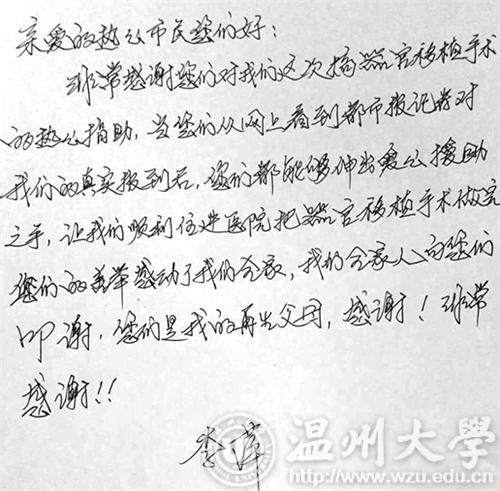 亲爱的热心市民您们好：
非常感谢您们对我们这次搞器官移植手术
的热心捐助，当您们从网上看到都市报记者对
我们的真实报到后，您们都能够伸出爱心援助
之手，让我们顺利住进医院把器官移植手术做完
您们的善举感动了我们全家，我们全家人向您们
叩谢，您们是我的再生父母，感谢！非常
感谢！！
李萍
温州大学
http://www.wzu.edu.cn